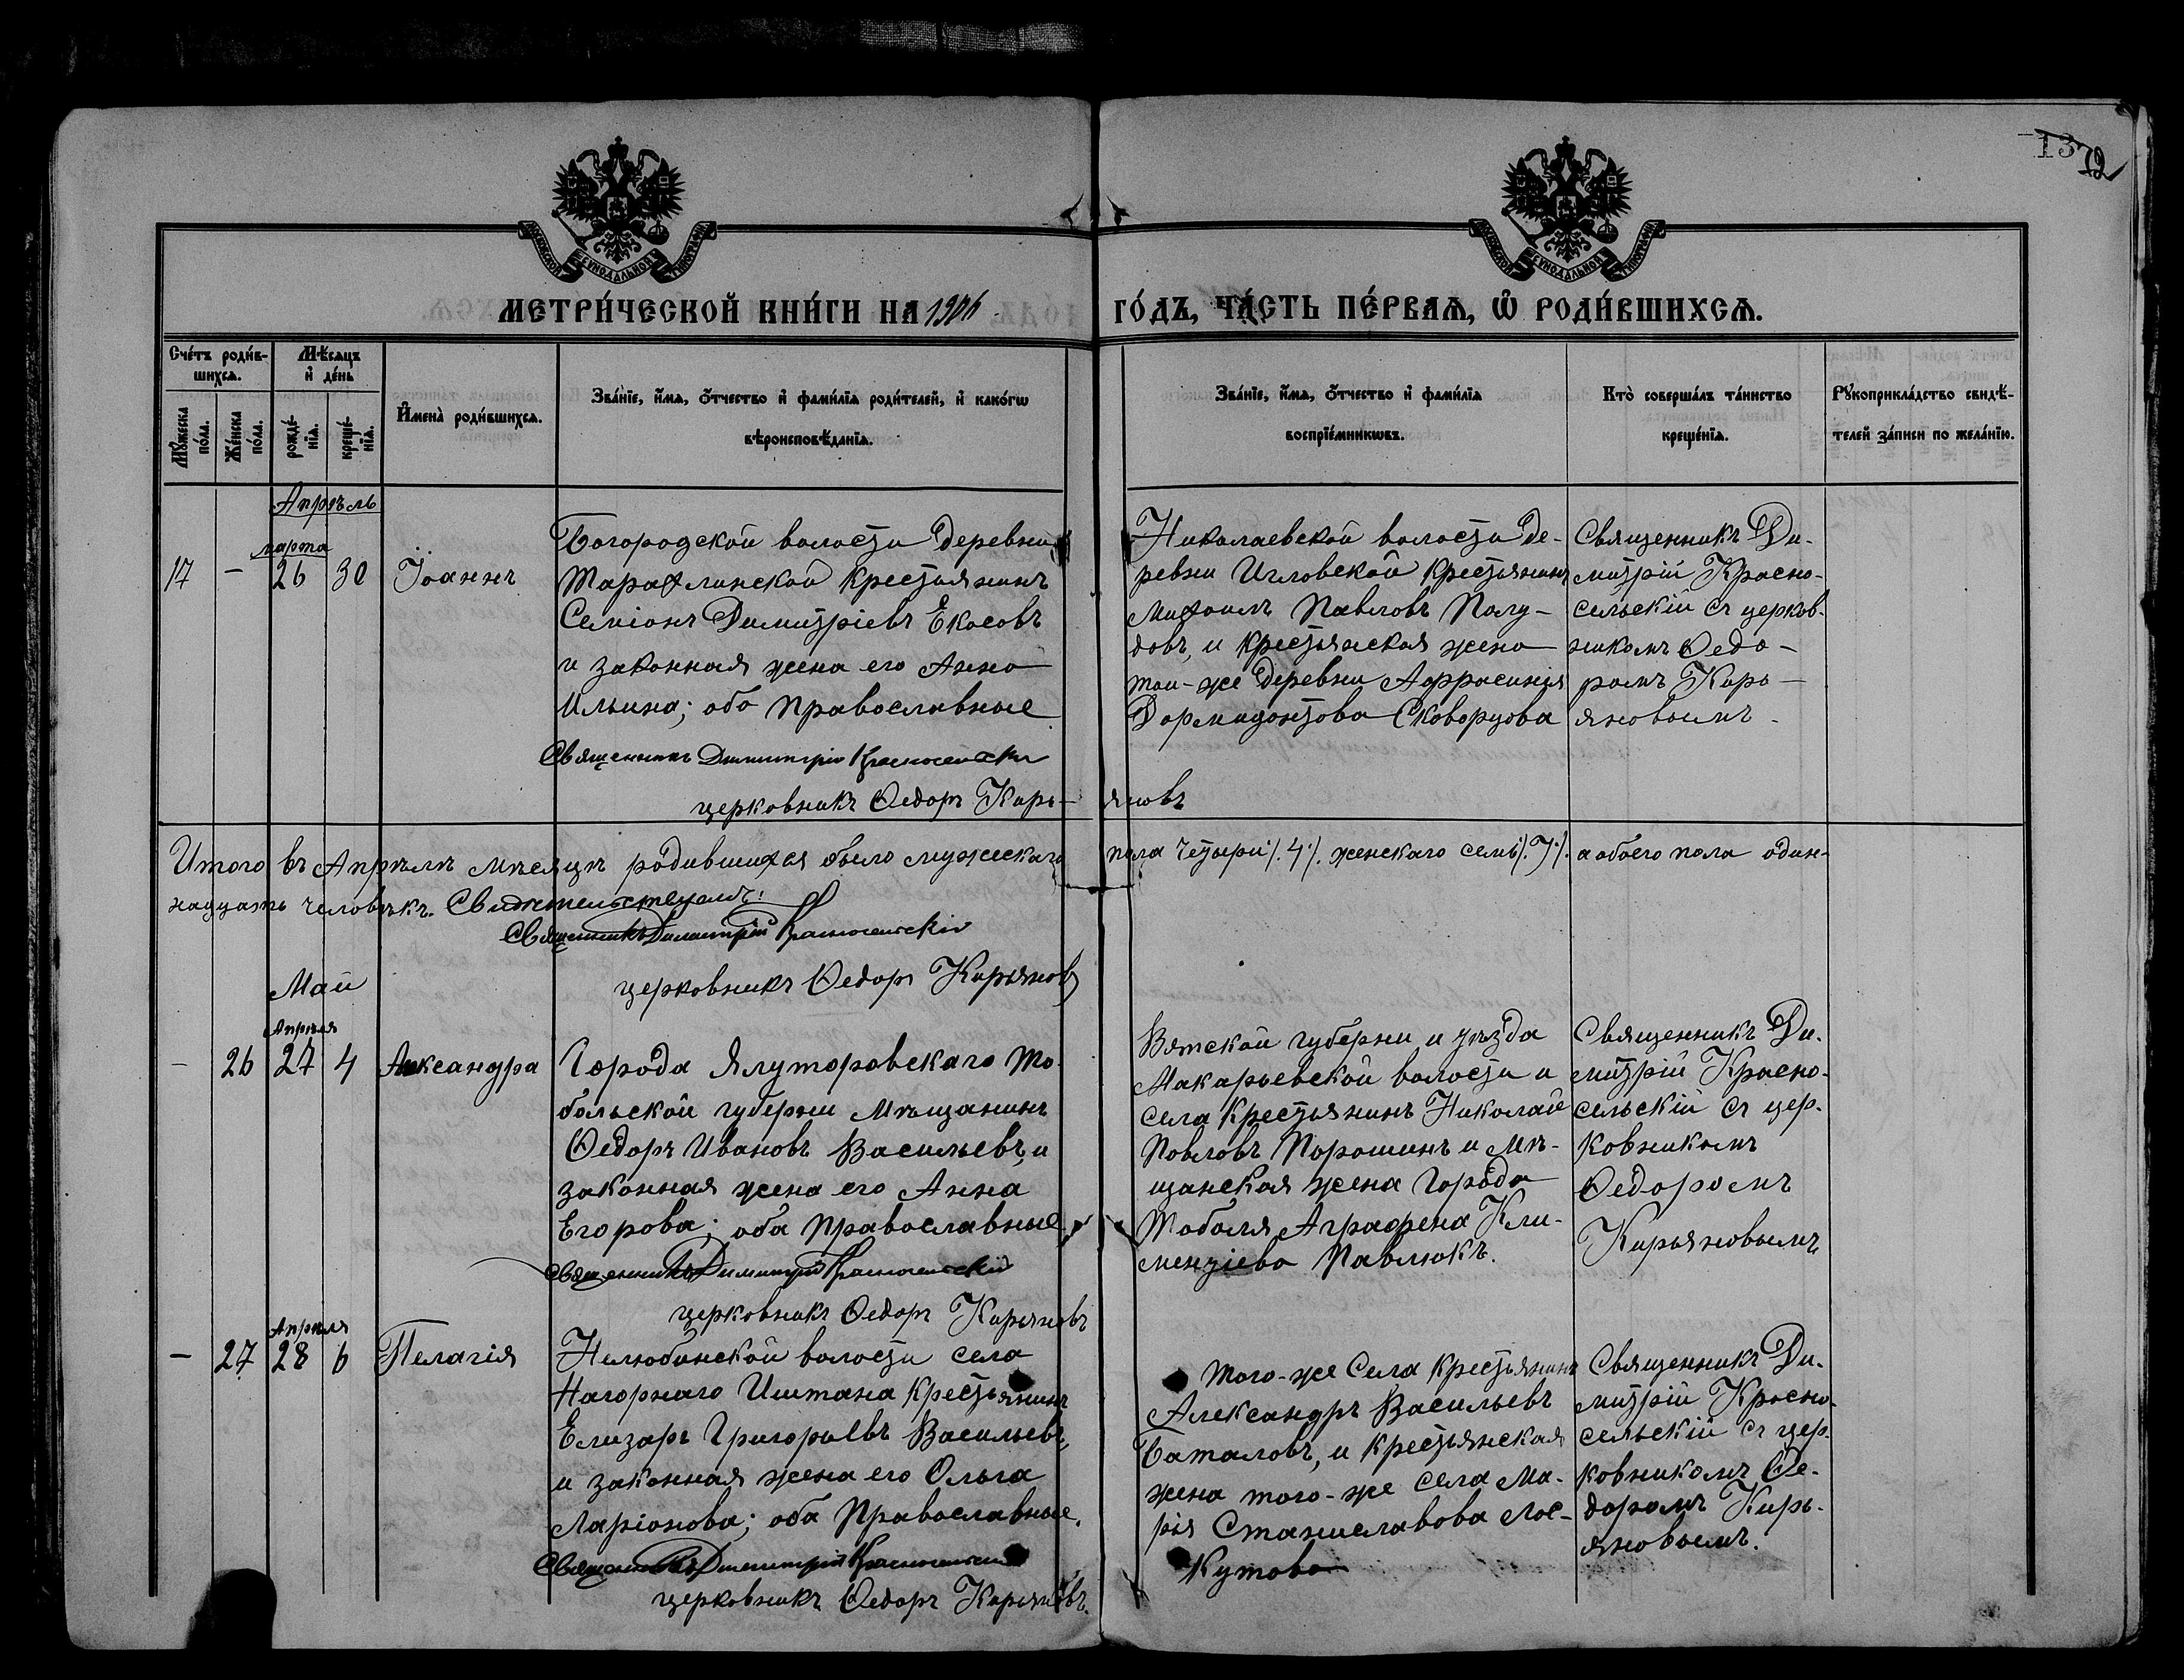 13 12
МОСКОВСКОЙ СѴНОДАЛЬНОЙ ТИПОГРАФІИ
МОСКОВСКОЙ СѴНОДАЛЬНОЙ ТИПОГРАФІИ
МЕТРИ́ЧЕСКОЙ КНИ́ГИ НА 1906
ГО́ДЪ, ЧА́СТЬ ПЕ́РВАѦ, Ѽ РОДИ́ВШИХСѦ.
Сче́тъ роди́в-
шихсѧ.
Мѣ́сѧцъ
и҆ де́нь
Мꙋ́жеска
по́ла.
Же́нска
по́ла.
рожде́-
нїѧ.
креще́-
нїѧ.
И҆мена̀ роди́вшихсѧ.
Зва́нїе, и҆́мѧ, ѻ҆́тчество и҆ фами́лїѧ роди́телей, и҆ како́гѡ
вѣроисповѣ́данїѧ.
Зва́нїе, и҆́мѧ, ѻ҆́тчество и҆ фами́лїѧ
воспрїе́мникѡвъ.
Кто̀ соверша́лъ та́инство
креще́нїѧ.
Рꙋкоприкла́дство свидѣ́-
телей за́писи по жела́нїю.
Апрѣль
марта
17 – 26 30 Іоаннъ
Богородской волости деревни
Тарахлинской крестьянинъ
Симіонъ Димитріевъ Екасовъ
и законная жена его Анна
Ильина; оба православные
Священникъ Димитрій Красносельскій
церковникъ Ѳедоръ Кирь-
яновъ
Николаевской волости де-
ревни Игловской крестьянинъ
Михаилъ Павловъ Полу-
довъ, и крестьянская жена
той-же деревни Афросинія
Дормидонтова Скворцова
Священникъ Ди-
митрій Красно-
сельскій съ церков-
никомъ Ѳедо-
ромъ Кирь-
яновымъ.
Итого въ Апрѣлѣ мѣсяцѣ родившихся было мужескаго пола четыри /.4./. женскаго семь /.7./. а обоего пола один-
надцать человѣкъ. Свидѣтельствуемъ:
Священникъ Димитрій Красносельскій
церковникъ Ѳедоръ Кирьяновъ
Май
Апрѣля
– 26 27 4 Александра
Города Ялуторовскаго То-
больской губерни Мѣщанинъ
Ѳедоръ Ивановъ Васильевъ, и
законная жена его Анна
Егорова; оба православные
Священникъ Димитрій Красносельскій
церковникъ Ѳедоръ Кирьяновъ
Вятской губерни и уѣзда
Макарьевской волости и
села крестьянинъ Николай
Павловъ Порошинъ и Мѣ-
щанская жена Города
Тоболя Аграфена Кли-
ментіева Павлюкъ.
Священникъ Ди-
митрій Красно-
сельскій съ цер-
ковникомъ
Ѳедоромъ
Кирьяновымъ
Апрѣля
– 27 28 6 Пелагія
Нелюбинской волости села
Нагорнаго Иштана крестьянинъ
Елизаръ Григорьевъ Васильевъ,
и законная жена его Ольга
Ларіонова; оба Православные.
Священникъ Димитрій Красносельскій
церковникъ Ѳедоръ Кирьяновъ.
того-же Села крестьянинъ
Александръ Васильевъ
Баталовъ, и крестьянская
жена того-же села Ма-
рія Станиславова Лос-
кутова
Священникъ Ди-
митрій Красно-
сельскій съ цер-
ковникомъ Ѳе-
доромъ Кирь-
яновымъ.